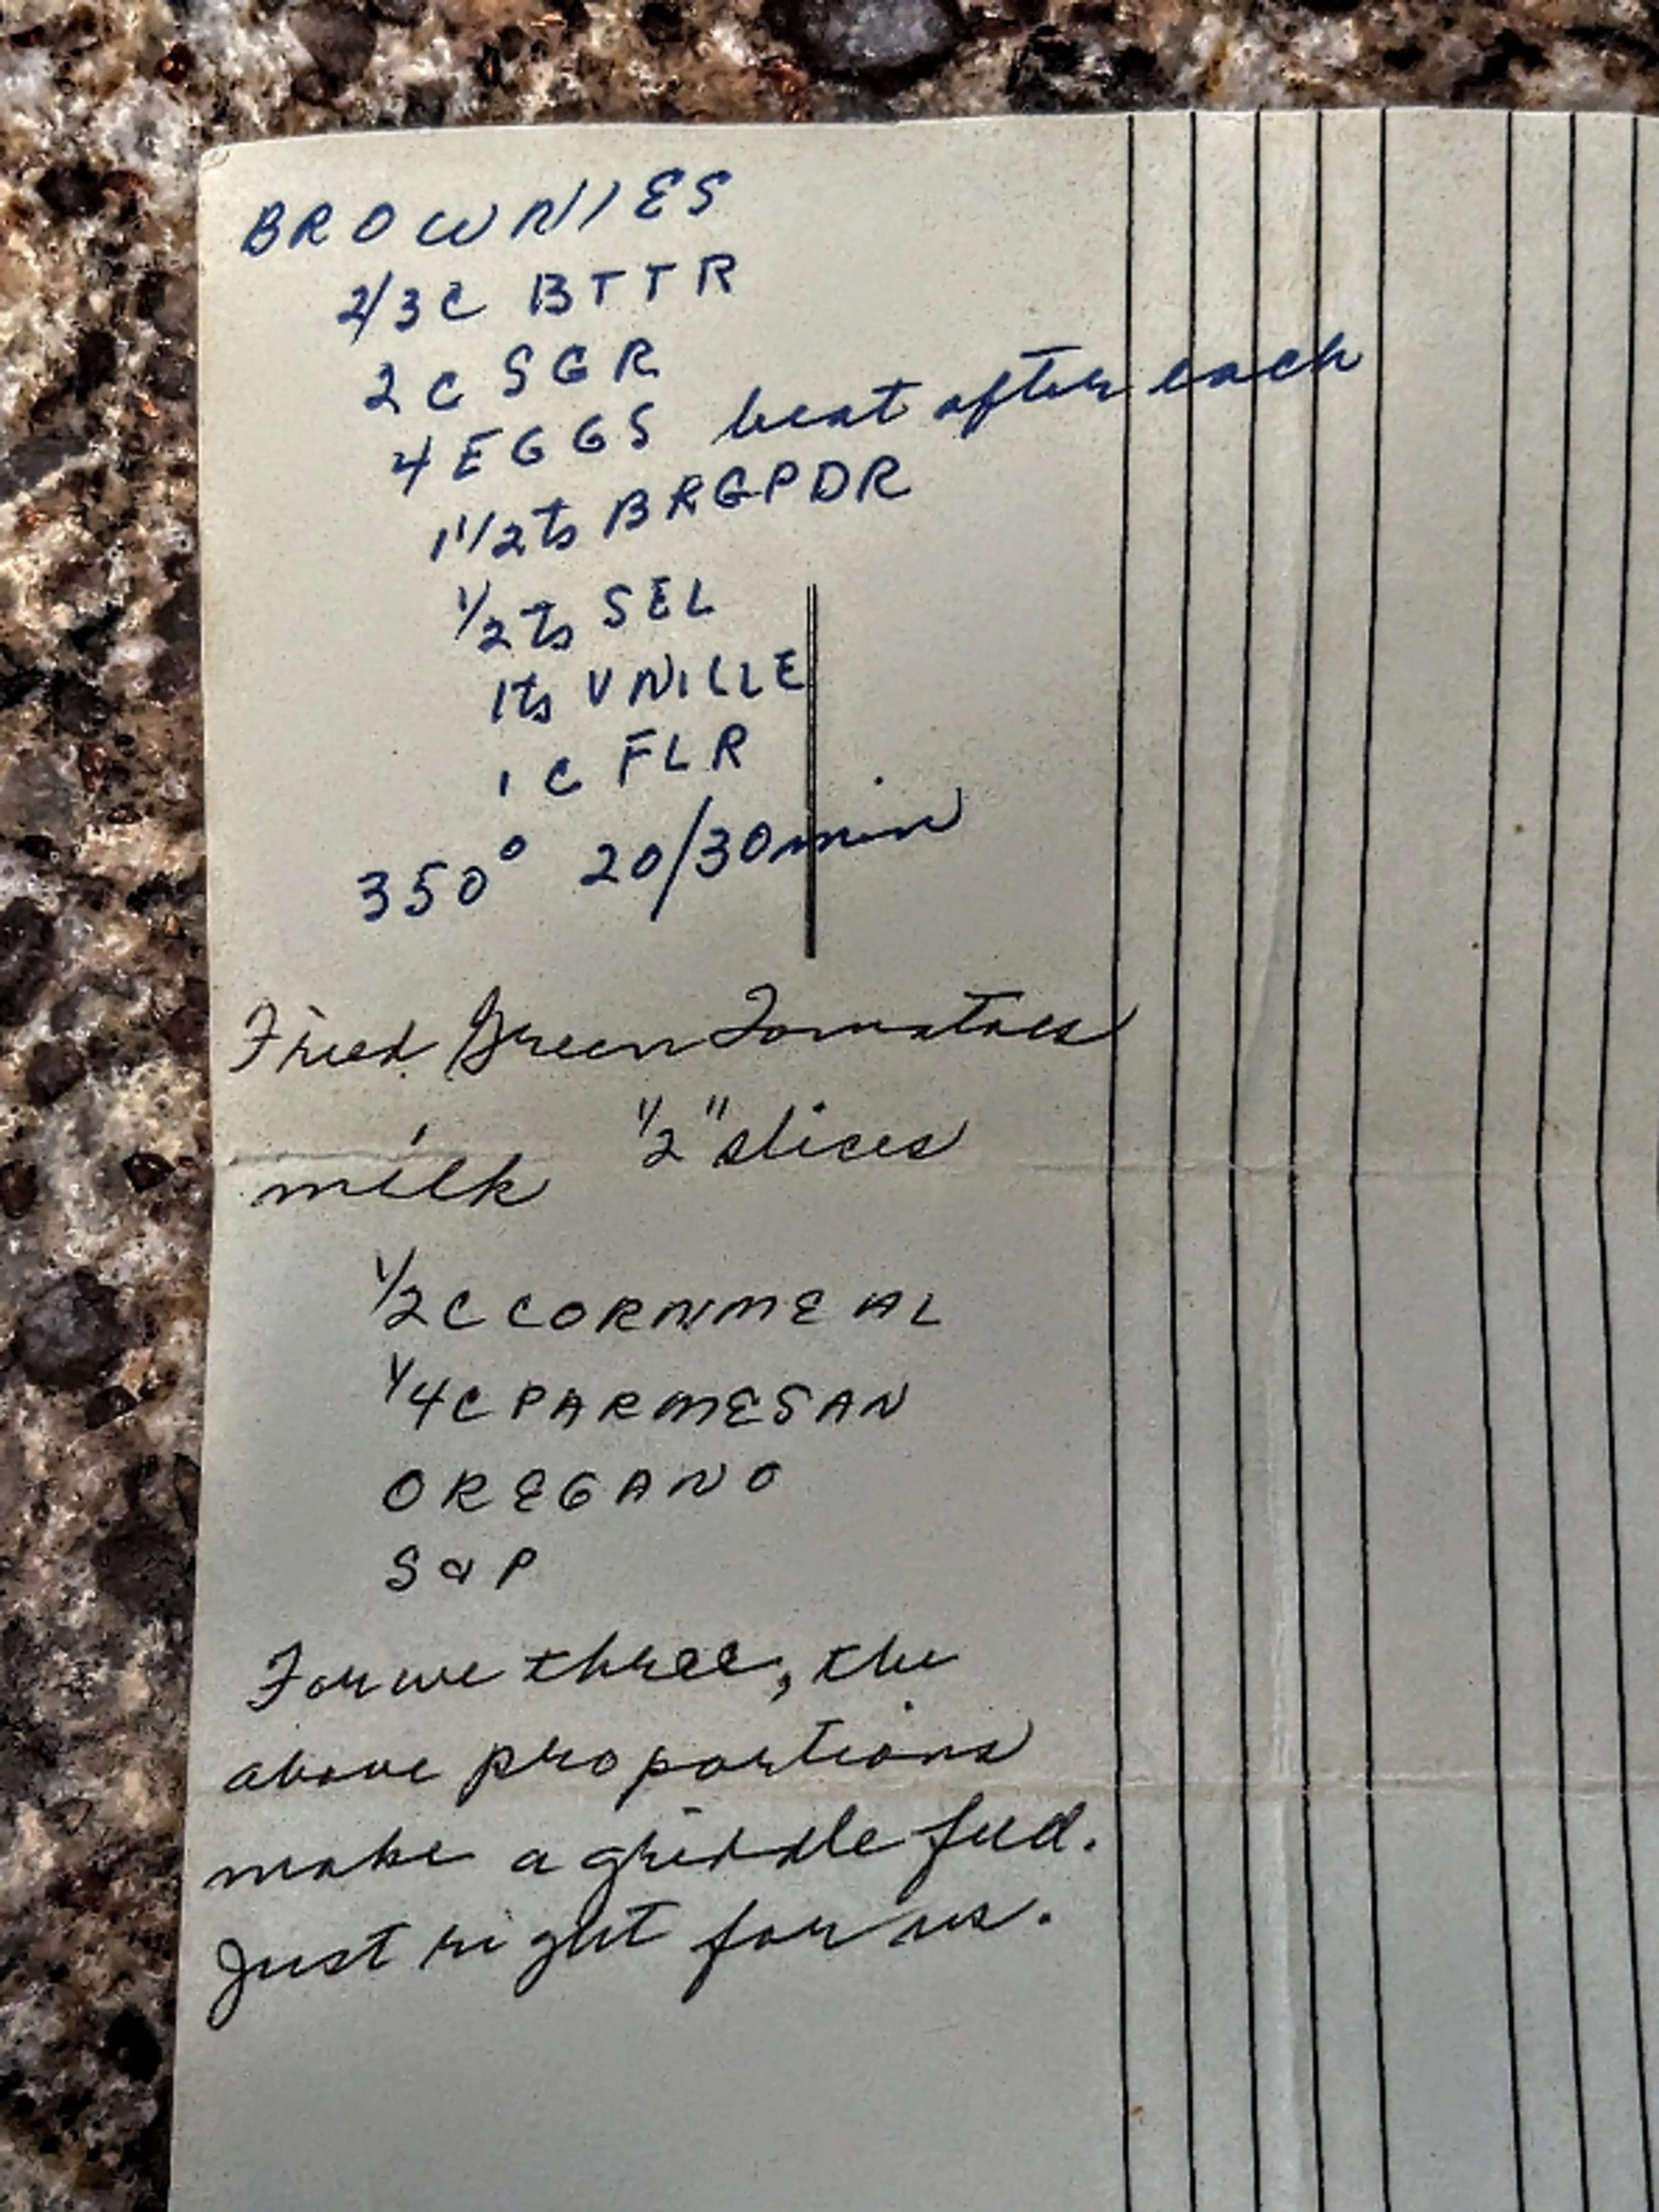 BROWNIES
2/3 C BTTR
2 C SGR
4 EGGS beat after each
1 1/2 ts BRGPDR
1/2 ts SEL
1 ts VNILLE
1 C FLR
350° 20/30 min
Fried Green Tomatoes
1/2" slices
milk
1/2 C CORNMEAL
1/4 C PARMESAN
OREGANO
S & P
For we three, the
above proportions
make a griddle full.
Just right for us.